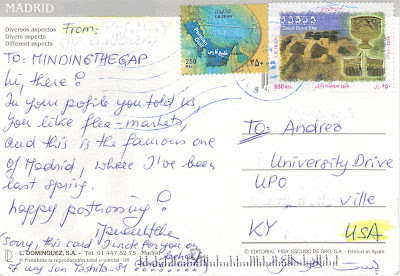 MADRID
Diversos aspectos
Divers aspects
Different aspects
From:
TO: MINDINGTHEGAP
hi, there!
In your profile you told us,
you like flea-markets,
and this is the famous one
of Madrid, where I've been
last spring.
happy postcrossing!
(Sorry, this card I wrote for you on
of my son
L. DOMINGUEZ, S.A. - Tel. 91 447 82 75 - Madrid
I.R.IRAN
Persian Gulf
250
۲۵۰
I.R.IRAN
650 Rls.
TO: Andrea
University Drive
UPO
ville
KY USA
© EDITORIAL FISA ESCUDO DE ORO, S.A. - Printed in Spain